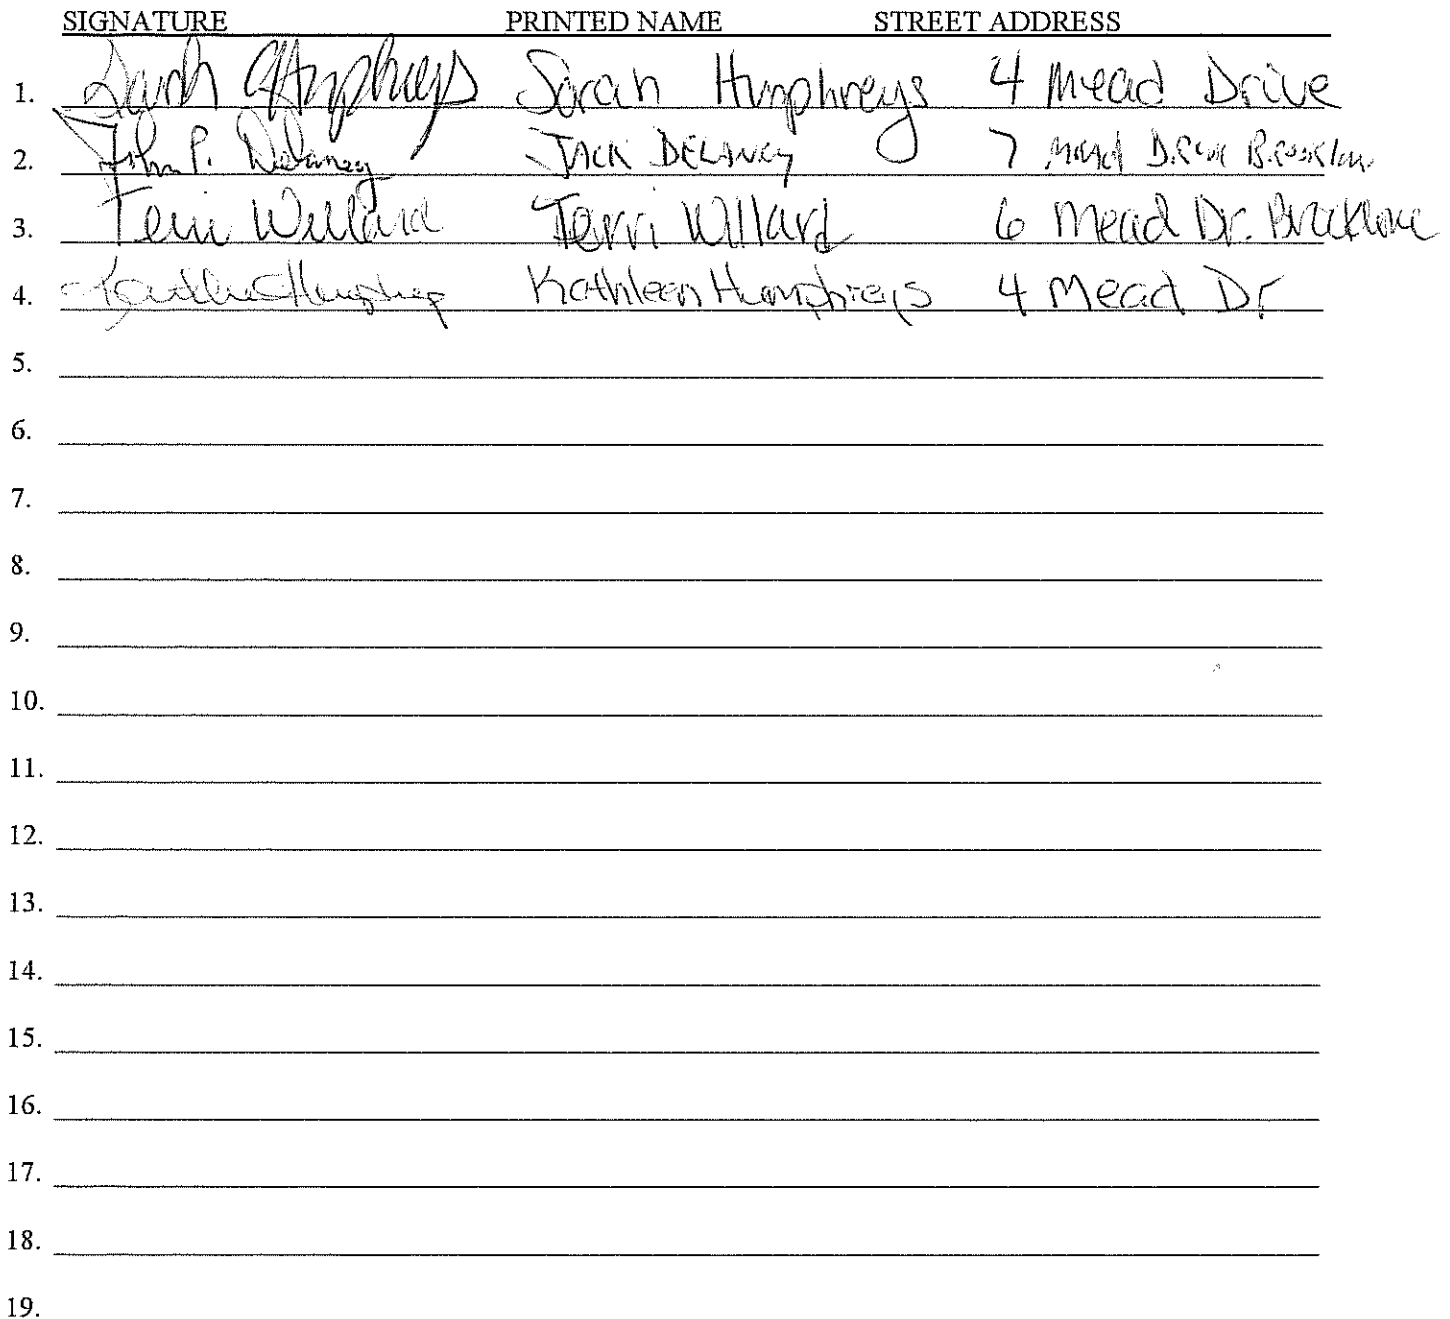 SIGNATURE PRINTED NAME STREET ADDRESS
1. Sarah Humphreys Sarah Humphreys 4 Mead Drive
2. John P. Delaney JACK DELANEY 7 Mead Drive Brookline
3. Terri Willard Terri Willard 6 Mead Dr. Brookline
4. Kathleen Humphreys Kathleen Humphreys 4 Mead Dr
5.
6.
7.
8.
9.
10.
11.
12.
13.
14.
15.
16.
17.
18.
19.